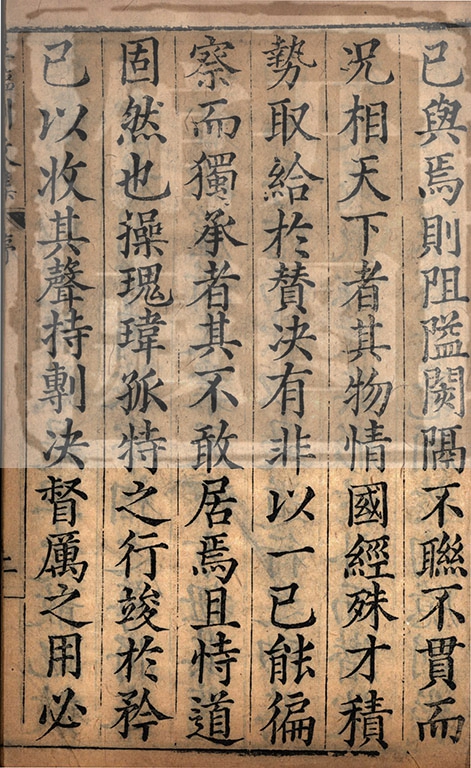 已與焉則阻隘闋隔不聯不貫而
况相天下者其物情國經殊才積
勢取給於賛决有非以一已能徧
察而獨承者其不敢居焉且恃道
固然也操瑰瑋孤特之行竣於矜
已以收其聲持剸决督厲之用必